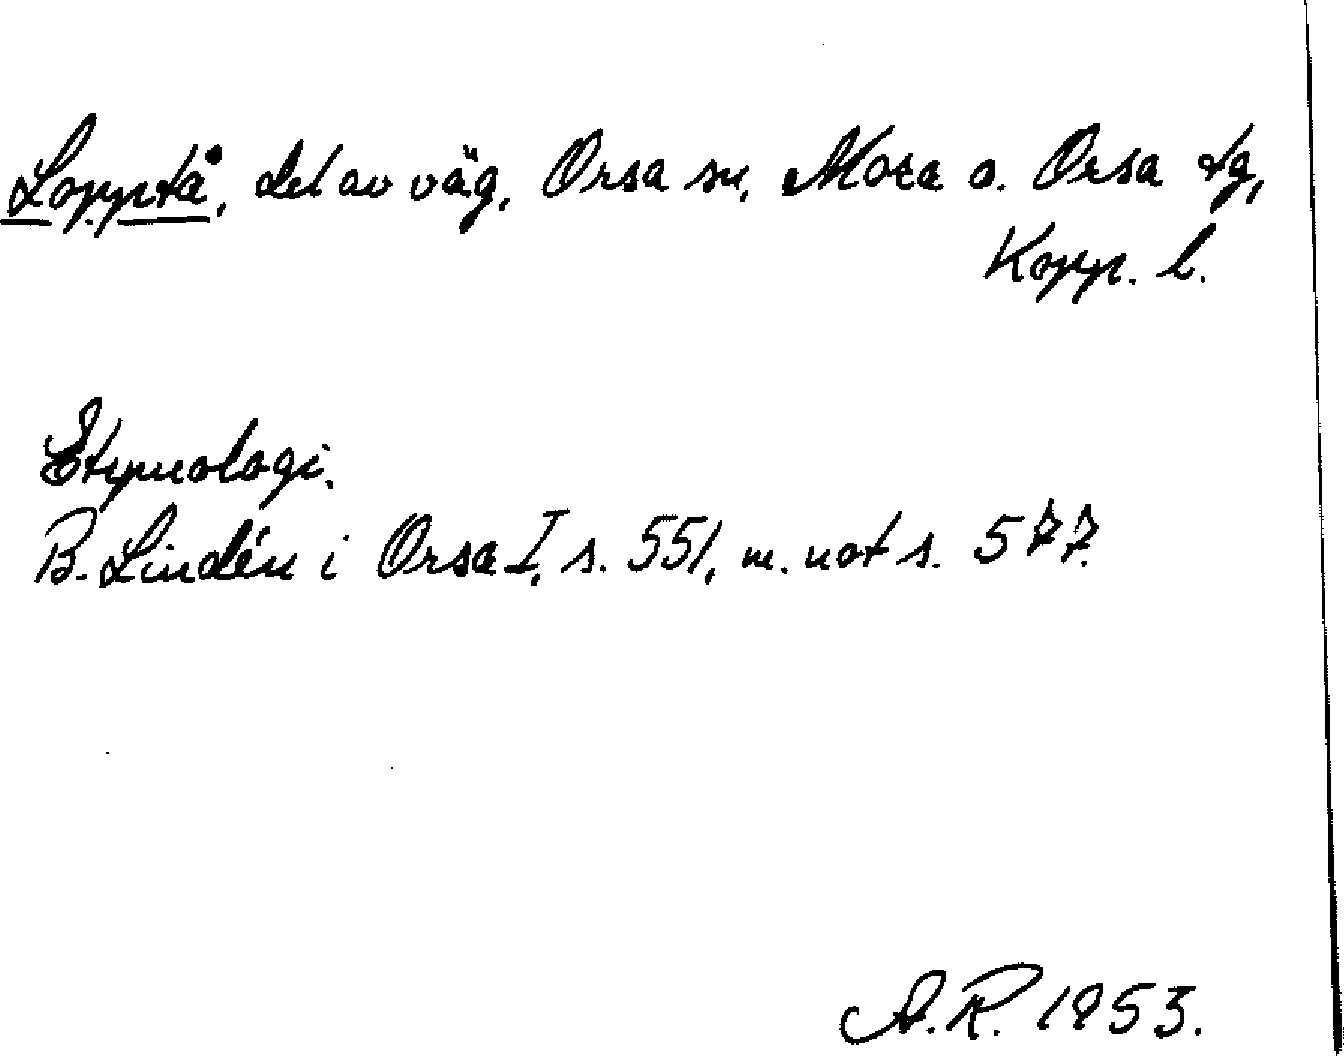 Lopptå, del av väg, Orsa sn, Mora o. Orsa tg,
Kopp. l.
Etymologi.
B. Lindén i Orsa I, s. 551, m. not s. 577.
A.R. 1953.